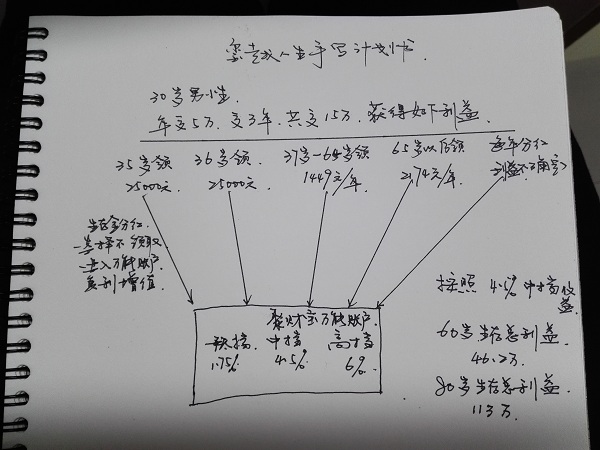 玺越人生手写计划书.
30岁男性.
年交5万.交3年.共交15万.获得如下利益
35岁领
25000元
36岁领.
25000元
37岁-64岁领
1449元/年.
65岁以后领
2174元/年.
每年分红
(利益不确定)
生存金分红
选择不领取
进入万能账户
复利增值.
聚财宝万能账户.
中档
4.5%
高档
6%.
1.75%
按照 4.5%中档收益.
60岁生存总利益.
46.2万.
80岁生存总利益.
113万.